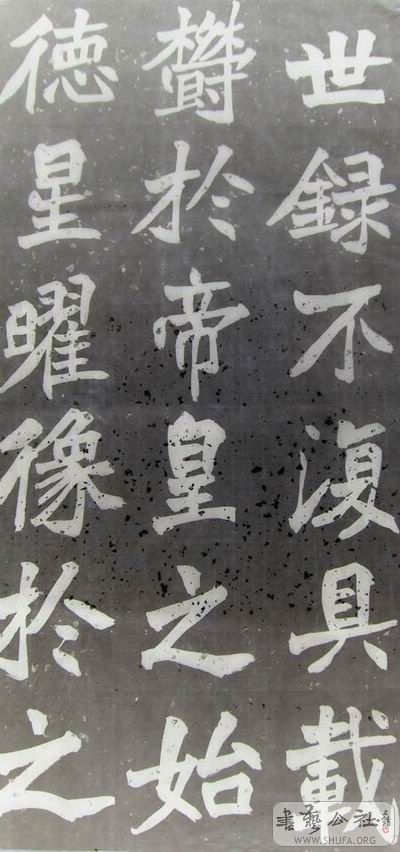 世録不復具載
欝於帝皇之始
徳星曜像於之
書藝公社
WWW.SHUFA.ORG